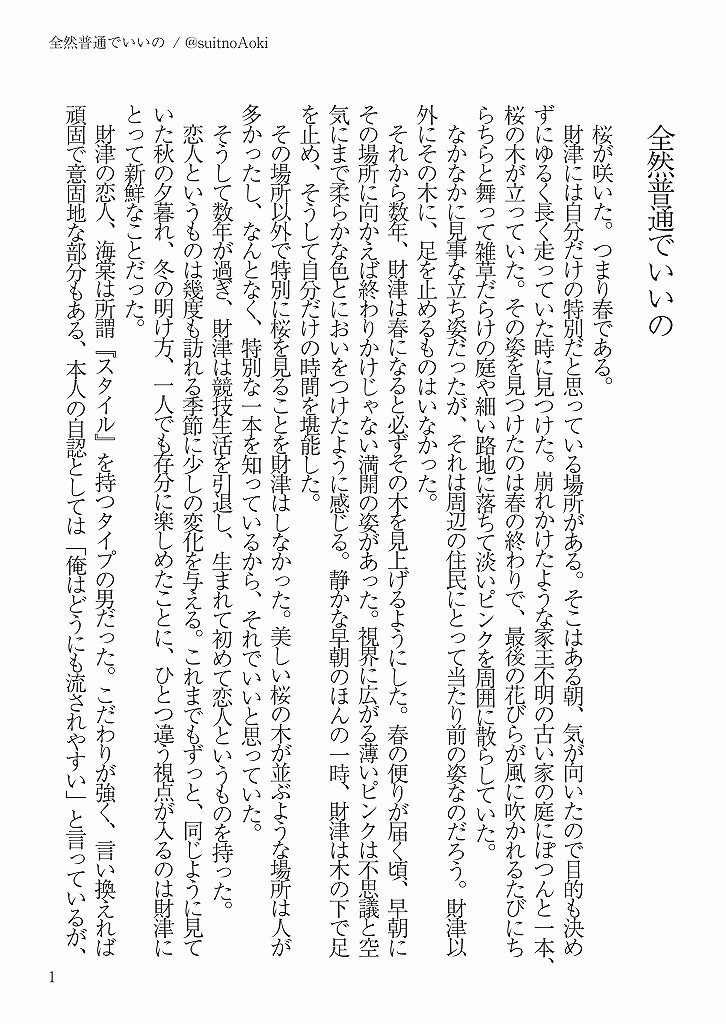 全然普通でいいの / @suitnoAoki
全然普通でいいの
桜が咲いた。つまり春である。
財津には自分だけの特別だと思っている場所がある。そこはある朝、気が向いたので目的も決め
ずにゆるく長く走っていた時に見つけた。崩れかけたような家主不明の古い家の庭にぽつんと一本、
桜の木が立っていた。その姿を見つけたのは春の終わりで、最後の花びらが風に吹かれるたびにち
らちらと舞って雑草だらけの庭や細い路地に落ちて淡いピンクを周囲に散らしていた。
なかなかに見事な立ち姿だったが、それは周辺の住民にとって当たり前の姿なのだろう。財津以
外にその木に、足を止めるものはいなかった。
それから数年、財津は春になると必ずその木を見上げるようにした。春の便りが届く頃、早朝に
その場所に向かえば終わりかけじゃない満開の姿があった。視界に広がる薄いピンクは不思議と空
気にまで柔らかな色とにおいをつけたように感じる。静かな早朝のほんの一時、財津は木の下で足
を止め、そうして自分だけの時間を堪能した。
その場所以外で特別に桜を見ることを財津はしなかった。美しい桜の木が並ぶような場所は人が
多かったし、なんとなく、特別な一本を知っているから、それでいいと思っていた。
そうして数年が過ぎ、財津は競技生活を引退し、生まれて初めて恋人というものを持った。
恋人というものは幾度も訪れる季節に少しの変化を与える。これまでもずっと、同じように見て
いた秋の夕暮れ、冬の明け方、一人でも存分に楽しめたことに、ひとつ違う視点が入るのは財津に
とって新鮮なことだった。
財津の恋人、海棠は所謂『スタイル』を持つタイプの男だった。こだわりが強く、言い換えれば
頑固で意固地な部分もある、本人の自認としては「俺はどうにも流されやすい」と言っているが、
1